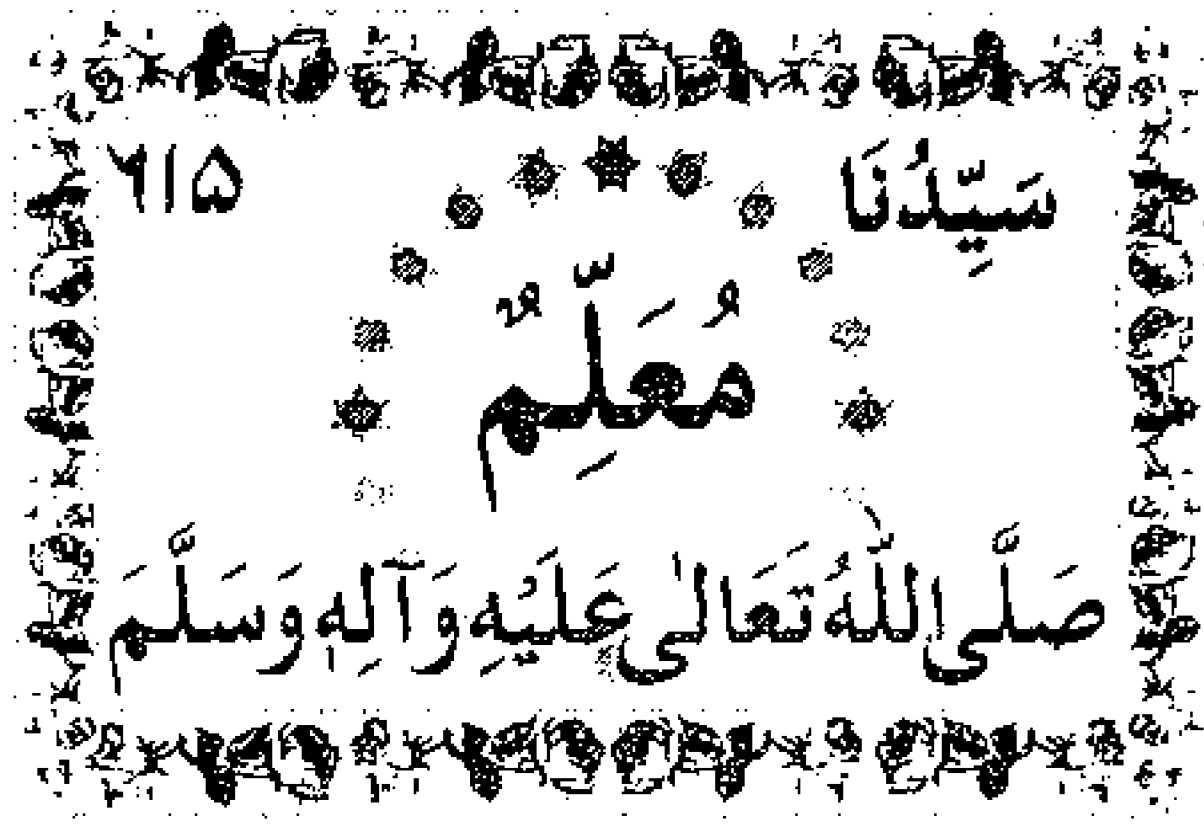 سَيِّدُنَا ۶۱۵
مُعَلِّمٌ
صَلَّى اللّٰهُ تَعَالىٰ عَلَيْهِ وَآلِهٖ وَسَلَّمَ